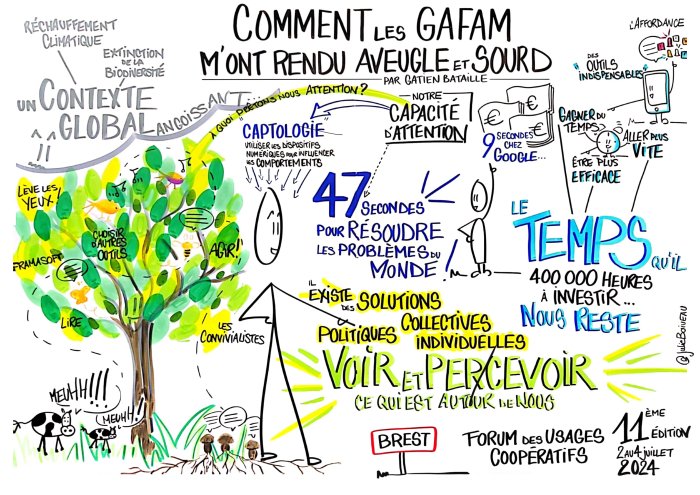 COMMENT LES GAFAM
M'ONT RENDU AVEUGLE ET SOURD
PAR GATIEN BATAILLE
RÉCHAUFFEMENT
CLIMATIQUE
EXTINCTION
DE LA
BIODIVERSITÉ
UN CONTEXTE
GLOBAL
ANGOISSANT...
À QUOI PRÊTONS NOUS ATTENTION?
NOTRE
CAPACITÉ
D'ATTENTION
CAPTOLOGIE
UTILISER LES DISPOSITIFS
NUMÉRIQUES POUR INFLUENCER
LES COMPORTEMENTS
€
€
€
9 SECONDES
CHEZ
GOOGLE...
L'AFFORDANCE
"DES
OUTILS
INDISPENSABLES"
GAGNER DU
TEMPS
ALLER PLUS
VITE
ÊTRE PLUS
EFFICACE
47 SECONDES
POUR RÉSOUDRE
LES PROBLÈMES DU
MONDE!
LE
TEMPS QU'IL
400 000 HEURES
À INVESTIR...
NOUS RESTE
LÈVE LES
YEUX!
CHOISIR
D'AUTRES
OUTILS
AGIR!
FRAMASOFT
LIRE
LES
CONVIVIALISTES
IL
EXISTE DES SOLUTIONS
POLITIQUES COLLECTIVES
INDIVIDUELLES
VOIR ET PERCEVOIR
CE QUI EST AUTOUR DE NOUS
MEUHH!!!
MEUHH!
BREST
FORUM DES USAGES
COOPÉRATIFS
11ÈME
ÉDITION
2 AU 4 JUILLET
2024